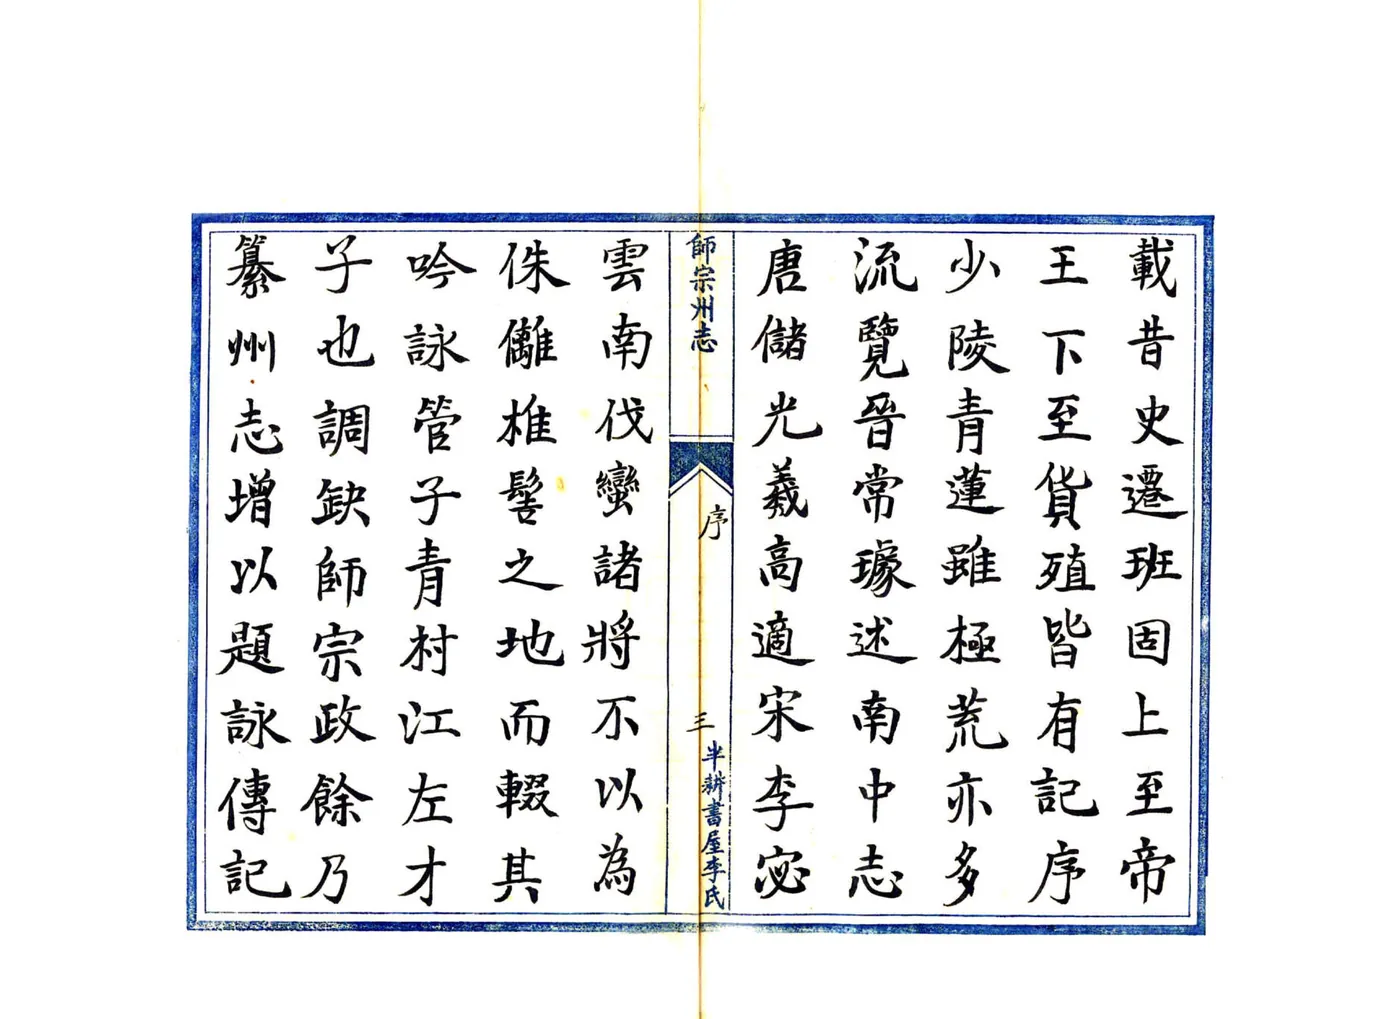 載昔史遷班固上至帝
王下至貨殖皆有記序
少陵青蓮雖極荒亦多
流覽晉常璩述南中志
唐儲光羲高適宋李宓
師宗州志
序
三
半耕書屋李氏
雲南伐蠻諸將不以為
侏儺椎髻之地而輟其
吟詠管子青村江左才
子也調缺師宗政餘乃
纂州志增以題詠傳記